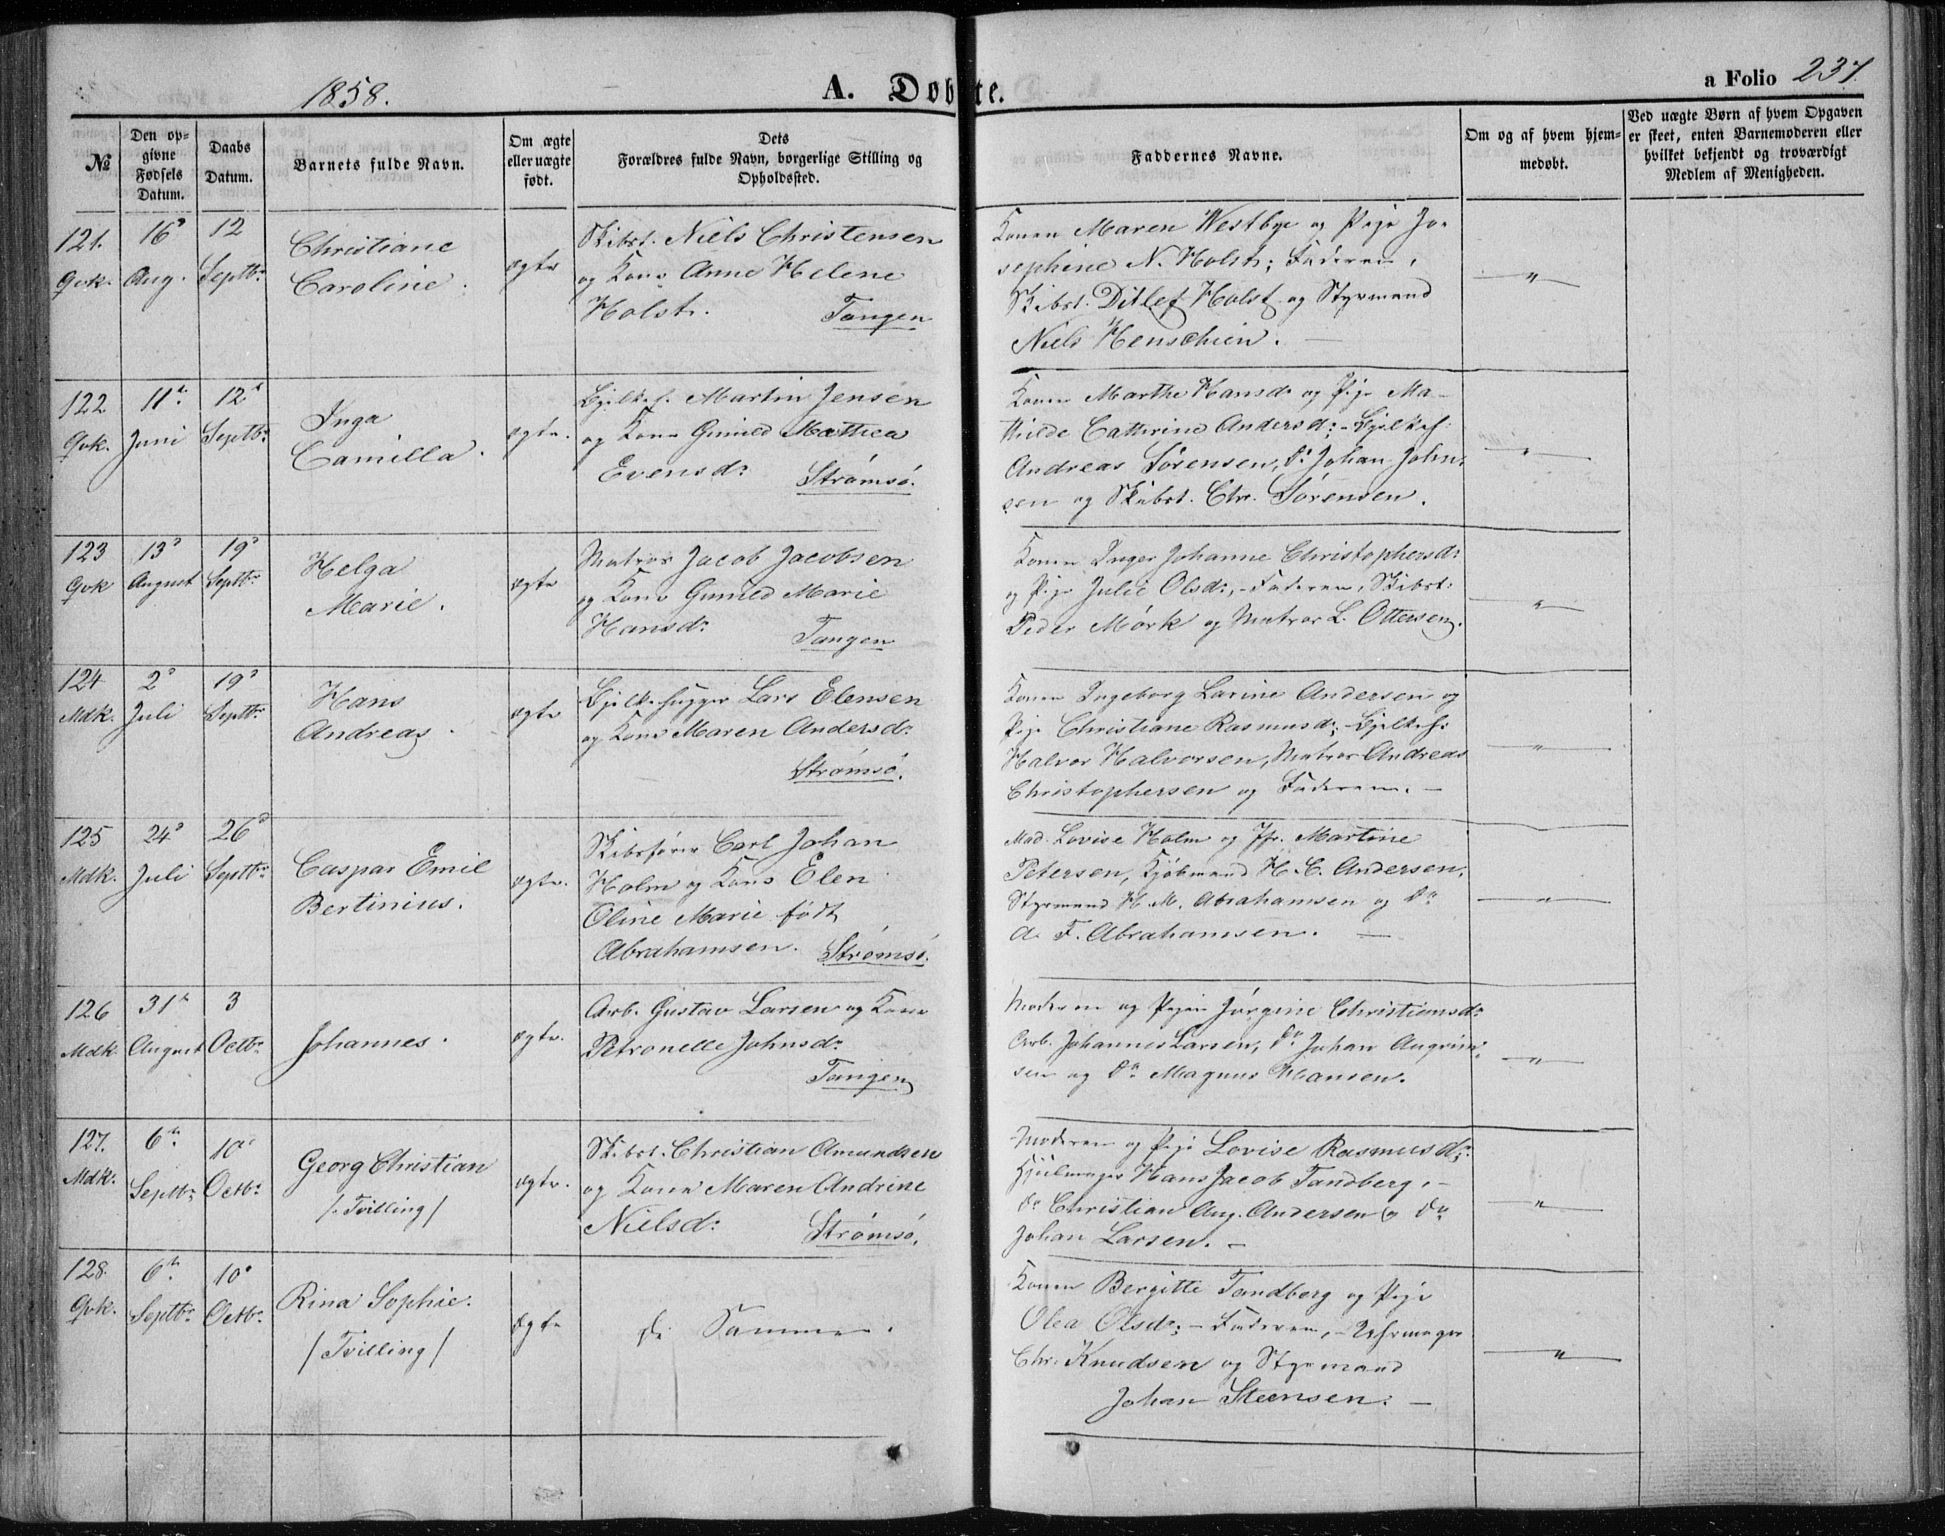 1858.
A. Døbte.
a Folio 237.
№
Den op-
givne
Fødsels
Datum.
Daabs
Datum.
Barnets fulde Navn.
Om ægte
eller uægte
født.
Dets
Forældres fulde Navn, borgerlige Stilling og
Opholdssted.
Faddernes Navne.
Om og af hvem hjem-
medøbt.
Ved uægte Børn af hvem Opgaven
er skeet, enten Barnemoderen eller
hvilket bekjendt og troværdigt
Medlem af Menigheden.
121.
Qvk.
16
Aug.
12
Septbr
Christiane
Caroline.
ægte
Skibst. Niels Christensen
og Kone Anne Helene
Holst. Tangen
Konen Maren Westbye og Pige Jo-
sephine N. Holst; Faderen,
Skibst. Ditlef Holst og Styrmand
Niels Henschien. —
"
122
Qvk.
11
Juni
12
Septbr
Inga
Camilla.
ægte.
Bjelkef. Martin Jensen
og Kone Gunild Mattea
Evensd: Strømsø.
Konen Marthe Hansd: og Pige Ma-
thilde Cathrine Andersd: - Bjelkef:
Andreas Sørensen, Do Johan John-
sen og Skibst. Chr. Sørensen.
"
123
Qvk
13
August
19
Septbr
Helga
Marie.
ægte
Matros Jacob Jacobsen
og Kone Gunild Marie
Hansd: Tangen
Konen Inger Johanne Christophersd:
og Pige Julie Olsd:, - Faderen, Skibst:
Peder Mørk og Matros L. Ottersen.
"
124
Mdk.
2
Juli
19
Septbr
Hans
Andreas.
ægte
Bjelkehugger Lars Elensen
og Kone Maren Andersd:
Strømsø.
Konen Ingeborg Larine Andersen og
Pige Christiane Rasmusd: - Bjelkef:
Halvor Halvorsen, Matros Andreas
Christophersen og Faderen. —
"
125
Mdk.
24
Juli
26
Septbr
Caspar Emil
Bertinius.
ægte.
Skibsfører Carl Johan
Holm og Kone Elen
Oline Marie født
Abrahamsen. Strømsø.
Mad. Lovise Holm og Jfr. Martine
Petersen, Kjøbmand H. C. Andersen,
Styrmand H. M. Abrahamsen og Do
F. Abrahamsen. —
"
126
Mdk.
31
August
3
Octbr
Johannes.
ægte.
Arb. Gustav Larsen og Kone
Petronelle Johnsd:
Tangen
Moderen og Pigen Jørgine Christiansd:
Arb. Johannes Larsen, Do Johan
sen og Do Magnus Hansen.
"
127.
Mdk.
6
Septbr
10
Octbr
Georg Christian
/: Tvilling /
ægte.
Skibst. Christian Amundsen
og Kone Maren Andrine
Nielsd: Strømsø.
Moderen og Pige Lovise Rasmusd:
Hjulmager Hans Jacob Tandberg, -
Do Christian Aug. Andersen og Do
Johan Larsen. —
"
128.
Qvk.
6
Septbr
10
Octbr
Rina Sophie.
/ Tvilling /
ægte
de Samme.
Konen Bergitte Tandberg og Pige
Olea Olsd: - Faderen, - Uhrmager
Chr. Knudsen og Styrmand
Johan Steensen. —
"